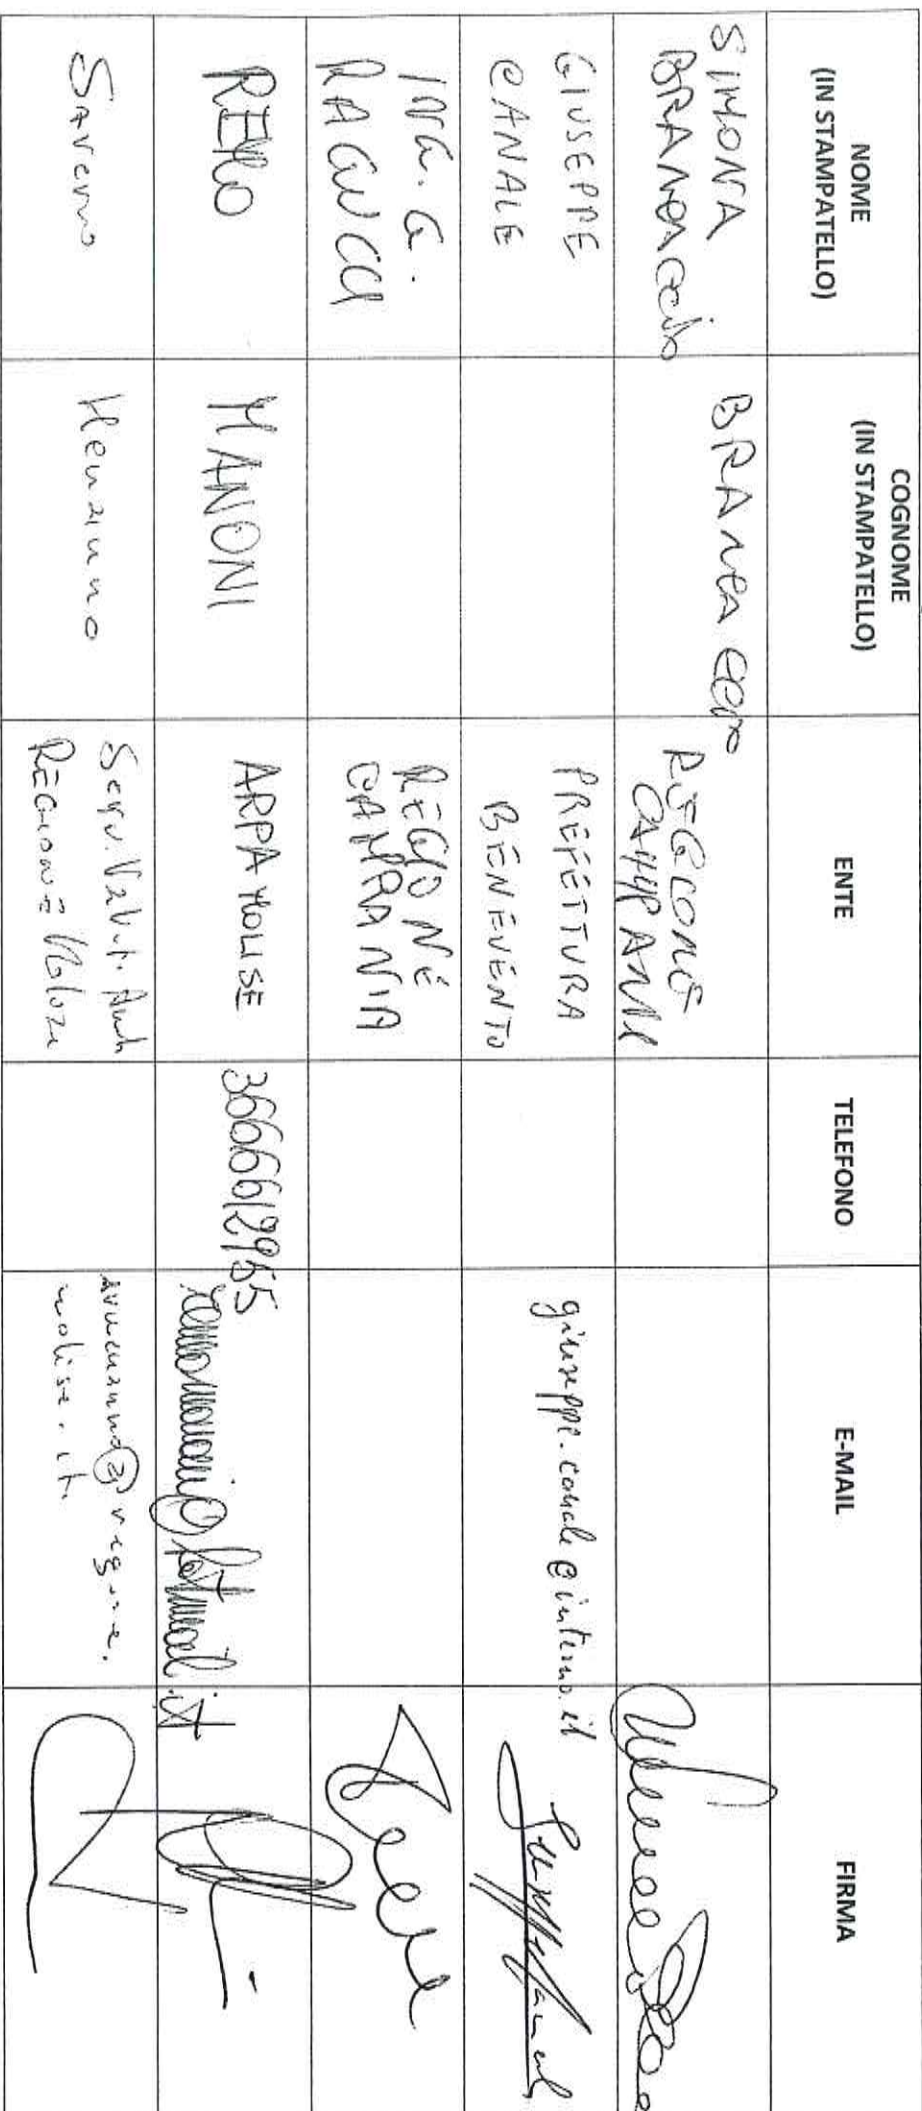 NOME
(IN STAMPATELLO)
COGNOME
(IN STAMPATELLO)
ENTE
TELEFONO
E-MAIL
FIRMA
SIMONA
BRANCACCIO
BRANCACCIO
REGIONE
CAMPANIA
GIUSEPPE
CANALE
PREFETTURA
BENEVENTO
giuseppe.canale@interno.it
ING. G.
RAGUCCI
REGIONE
CAMPANIA
REMO
MANONI
ARPA MOLISE
3666612955
Saverio
Menzinno
Serv. Valut. Amb
REGIONE Molise
molise.it.